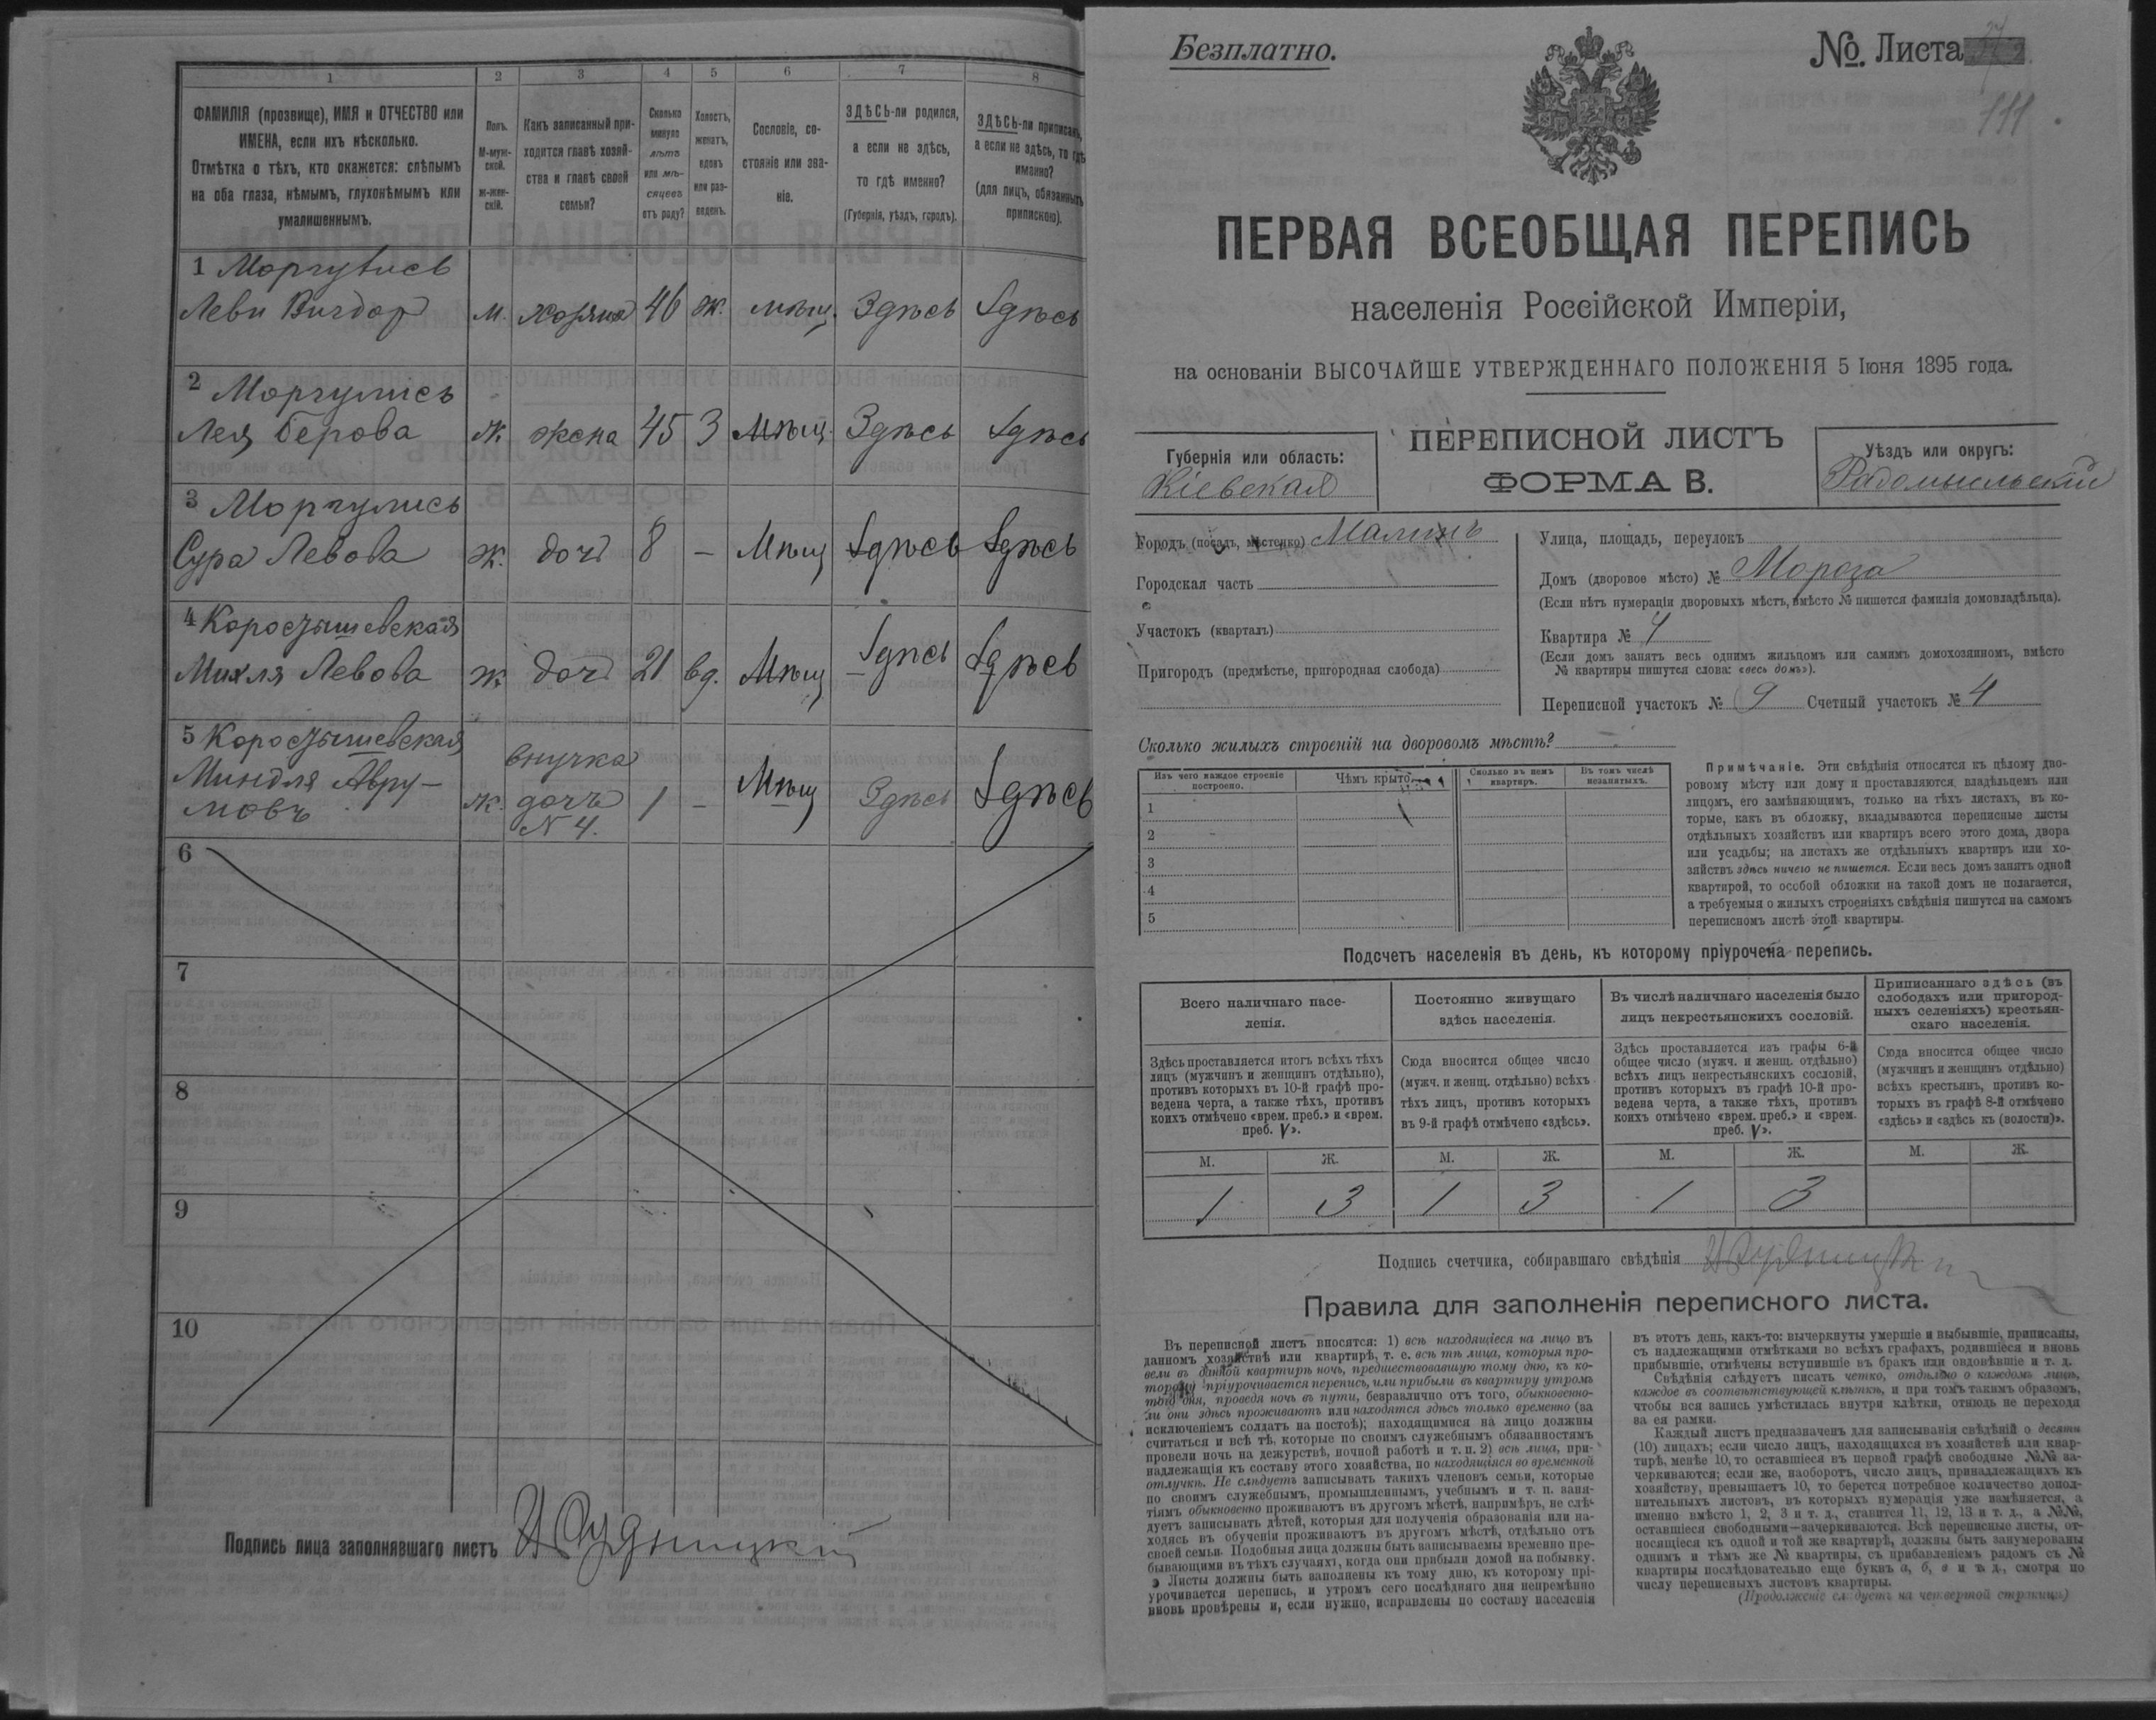 1
2
3
4
5
6
7
8
ФАМИЛІЯ (прозвище), ИМЯ и ОТЧЕСТВО или
ИМЕНА, если ихъ нѣсколько.
Отмѣтка о тѣхъ, кто окажется: слѣпымъ
на оба глаза, нѣмымъ, глухонѣмымъ или
умалишеннымъ.
Полъ.
М-муж-
ской.
ж-жен-
скій.
Какъ записанный при-
ходится главѣ хозяй-
ства и главѣ своей
семьи?
Сколько
минуло
лѣтъ
или мѣ-
сяцевъ
отъ роду?
Холостъ,
женатъ,
вдовъ
или раз-
веденъ.
Сословіе, со-
стояніе или зва-
ніе.
ЗДѢСЬ-ли родился,
а если не здѣсь,
то гдѣ именно?
(Губернія, уѣздъ, городъ).
ЗДѢСЬ-ли приписанъ,
а если не здѣсь, то гдѣ
именно?
(для лицъ, обязанныхъ
припискою).
1 Моргулисъ
Леви Вигдор м. хозяинъ 46 ж. мѣщ. Здѣсь Здѣсь
2 Моргулисъ
Лея Берова ж. жена 45 З Мѣщ. Здѣсь Здѣсь
3 Моргулисъ
Сура Левова ж. дочь 8 – Мѣщ Здѣсь Здѣсь
4 Коростышевская
Михля Левова ж дочь 21 вд. Мѣщ Здѣсь Здѣсь
5 Коростышевская
Миндля Авру-
мовъ ж. внучка
дочь
N 4. 1 – Мѣщ Здѣсь Здѣсь
6
7
8
9
10
Подпись лица заполнявшаго листъ
Безплатно.
№. Листа
111
ПЕРВАЯ ВСЕОБЩАЯ ПЕРЕПИСЬ
населенія Россійской Имперіи,
на основаніи ВЫСОЧАЙШЕ УТВЕРЖДЕННАГО ПОЛОЖЕНІЯ 5 Іюня 1895 года.
Губернія или область:
Кіевская
ПЕРЕПИСНОЙ ЛИСТЪ
ФОРМА В.
Уѣздъ или округъ:
Радомысльскій
Городъ (посадъ, мѣстечко) Малинъ
Городская часть
Участокъ (кварталъ)
Пригородъ (предмѣстье, пригородная слобода)
Улица, площадь, переулокъ
Домъ (дворовое мѣсто) № Мороза
(Если нѣтъ нумераціи дворовыхъ мѣстъ, вмѣсто № пишется фамилія домовладѣльца).
Квартира № 4
(Если домъ занятъ весь однимъ жильцомъ или самимъ домохозяиномъ, вмѣсто
№ квартиры пишутся слова: «весь домъ»).
Переписной участокъ № 9 Счетный участокъ № 4
Сколько жилыхъ строеній на дворовомъ мѣстѣ?
Изъ чего каждое строеніе
построено.
Чѣмъ крыто.
Сколько въ немъ
квартиръ.
Въ томъ числѣ
незанятыхъ.
1
2
3
4
5
Примѣчаніе. Эти свѣдѣнія относятся къ цѣлому дво-
ровому мѣсту или дому и проставляются владѣльцемъ или
лицомъ, его замѣняющимъ, только на тѣхъ листахъ, въ ко-
торые, какъ въ обложку, вкладываются переписные листы
отдѣльныхъ хозяйствъ или квартиръ всего этого дома, двора
или усадьбы; на листахъ же отдѣльныхъ квартиръ или хо-
зяйствъ здѣсь ничего не пишется. Если весь домъ занятъ одной
квартирой, то особой обложки на такой домъ не полагается,
а требуемыя о жилыхъ строеніяхъ свѣдѣнія пишутся на самомъ
переписномъ листѣ этой квартиры.
Подсчетъ населенія въ день, къ которому пріурочена перепись.
Всего наличнаго насе-
ленія.
Постоянно живущаго
здѣсь населенія.
Въ числѣ наличнаго населенія было
лицъ некрестьянскихъ сословій.
Приписаннаго здѣсь (въ
слободахъ или пригород-
ныхъ селеніяхъ) крестьян-
скаго населенія.
Здѣсь проставляется итогъ всѣхъ тѣхъ
лицъ (мужчинъ и женщинъ отдѣльно),
противъ которыхъ въ 10-й графѣ про-
ведена черта, а также тѣхъ, противъ
коихъ отмѣчено «врем. преб.» и «врем.
преб. V».
Сюда вносится общее число
(мужч. и женщ. отдѣльно) всѣхъ
тѣхъ лицъ, противъ которыхъ
въ 9-й графѣ отмѣчено «здѣсь».
Здѣсь проставляется изъ графы 6-й
общее число (мужч. и женщ. отдѣльно)
всѣхъ лицъ некрестьянскихъ сословій,
противъ которыхъ въ графѣ 10-й про-
ведена черта, а также тѣхъ, противъ
коихъ отмѣчено «врем. преб.» и «врем.
преб. V».
Сюда вносится общее число
(мужчинъ и женщинъ отдѣльно)
всѣхъ крестьянъ, противъ ко-
торыхъ въ графѣ 8-й отмѣчено
«здѣсь» и «здѣсь къ (волости)».
М. Ж. М. Ж. М. Ж. М. Ж.
1 3 1 3 1 3
Подпись счетчика, собиравшаго свѣдѣнія
Правила для заполненія переписного листа.
Въ переписной листъ вносятся: 1) всѣ находящіеся на лицо въ
данномъ хозяйствѣ или квартирѣ, т. е. всѣ тѣ лица, которыя про-
вели въ данной квартирѣ ночь, предшествовавшую тому дню, къ ко-
торому пріурочивается перепись, или прибыли въ квартиру утромъ
того дня, проведя ночь въ пути, безразлично отъ того, обыкновенно-
ли они здѣсь проживаютъ или находятся здѣсь только временно (за
исключеніемъ солдатъ на постоѣ); находящимися на лицо должны
считаться и всѣ тѣ, которые по своимъ служебнымъ обязанностямъ
провели ночь на дежурствѣ, ночной работѣ и т. п. 2) всѣ лица, при-
надлежащія къ составу этого хозяйства, но находящіяся во временной
отлучкѣ. Не слѣдуетъ записывать такихъ членовъ семьи, которые
по своимъ служебнымъ, промышленнымъ, учебнымъ и т. п. заня-
тіямъ обыкновенно проживаютъ въ другомъ мѣстѣ, напримѣръ, не слѣ-
дуетъ записывать дѣтей, которыя для полученія образованія или на-
ходясь въ обученіи проживаютъ въ другомъ мѣстѣ, отдѣльно отъ
своей семьи. Подобныя лица должны быть записываемы временно пре-
бывающими въ тѣхъ случаяхъ, когда они прибыли домой на побывку.
Листы должны быть заполнены къ тому дню, къ которому прі-
урочивается перепись, и утромъ сего послѣдняго дня непремѣнно
вновь провѣрены и, если нужно, исправлены по составу населенія
въ этотъ день, какъ-то: вычеркнуты умершіе и выбывшіе, приписаны,
съ надлежащими отмѣтками во всѣхъ графахъ, родившіеся и вновь
прибывшіе, отмѣчены вступившіе въ бракъ или овдовѣвшіе и т. д.
Свѣдѣнія слѣдуетъ писать четко, отдѣльно о каждомъ лицѣ,
каждое въ соотвѣтствующей клѣткѣ, и при томъ такимъ образомъ,
чтобы вся запись умѣстилась внутри клѣтки, отнюдь не переходя
за ея рамки.
Каждый листъ предназначенъ для записыванія свѣдѣній о десяти
(10) лицахъ; если число лицъ, находящихся въ хозяйствѣ или квар-
тирѣ, менѣе 10, то оставшіеся въ первой графѣ свободные №№ за-
черкиваются; если же, наоборотъ, число лицъ, принадлежащихъ къ
хозяйству, превышаетъ 10, то берется потребное количество допол-
нительныхъ листовъ, въ которыхъ нумерація уже измѣняется, а
именно вмѣсто 1, 2, 3 и т. д., ставится 11, 12, 13 и т. д., а №№,
оставшіеся свободными—зачеркиваются. Всѣ переписные листы, от-
носящіеся къ одной и той же квартирѣ, должны быть занумерованы
однимъ и тѣмъ же № квартиры, съ прибавленіемъ рядомъ съ №
квартиры послѣдовательно еще буквъ а, б, в и т. д., смотря по
числу переписныхъ листовъ квартиры.
(Продолженіе слѣдуетъ на четвертой страницѣ)